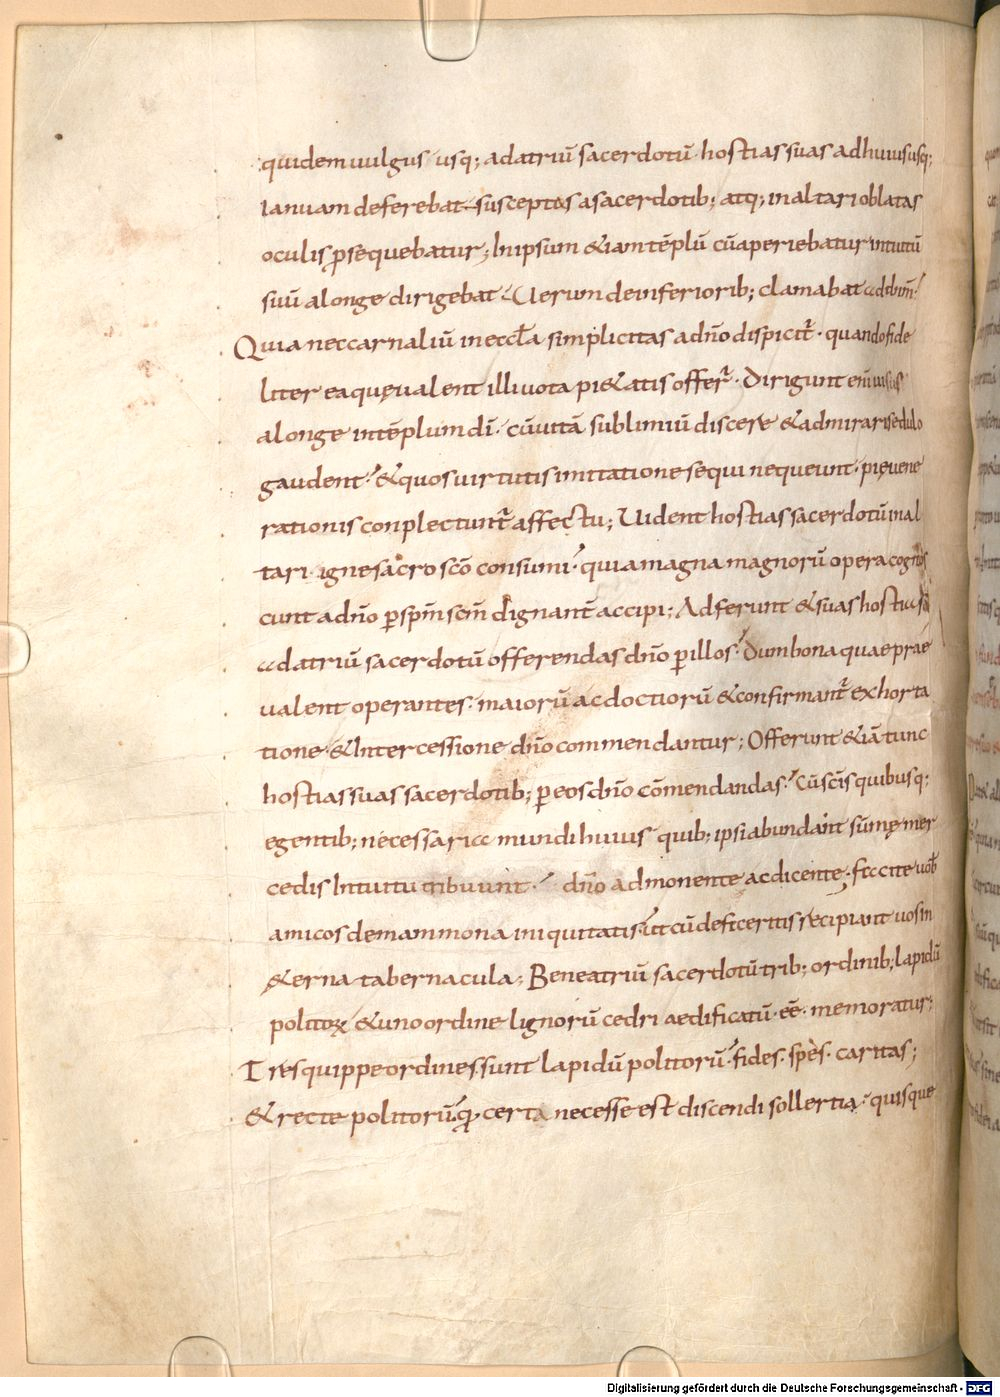 quidem uulgus usq; ad atriū sacerdotū hostias suas adhuiususq;
ianuam deferebat susceptas a sacerdotib; atq; in altari oblatas
oculis ꝑsequebatur; In ipsum &iam tēplū cū aperiebatur intuitū
suū a longe dirigebat. Uerum de inferiorib; clamabat ad dñm.
Quia nec carnaliū in eccła simplicitas a dño dispicit᷑. quando fide
liter ea quę ualent illi uota pi&atis offer᷑. Dirigunt eni uisus
a longe in tēplum dī. cū uitā sublimiū discere & admirari sedulo
gaudent. & quos uirtutis imitatione sequi nequeunt. pię uene
rationis conplectunt᷑ affectu; Uident hostias sacerdotū in al
tari igne sacro scō consumi. quia magna magnorū opera cognos
cunt a dño ꝑ spm scm dignant᷑ accipi; Adferunt & suas hostias
ad atriū sacerdotū offerendas dño ꝑ illos. dum bona quae prae
ualent operantes. maiorū ac doctiorū & confirmant᷑ exhorta
tione & Intercessione dño commendantur; Offerunt & iā tunc
hostias suas sacerdotib; ꝑ eos dño cōmendandas. cū scīs quibusq;
egentib; necessaria mundi huius quib; ipsi abundant sūmę mer
cedis Intuitu tribuunt. dño admonente ac dicente. facite uob
amicos de mammona iniquitatis. ut cū defeceritis recipiant uos in
&erna tabernacula; Bene atriū sacerdotū trib; ordinib; lapidū
politoꝝ & uno ordine lignorū cedri aedificatū eē memoratur;
Tres quippe ordines sunt lapidū politorū. fides. spes. caritas;
& recte politorū. certa necesse est discendi sollertia. quisque
Digitalisierung gefördert durch die Deutsche Forschungsgemeinschaft - DFG